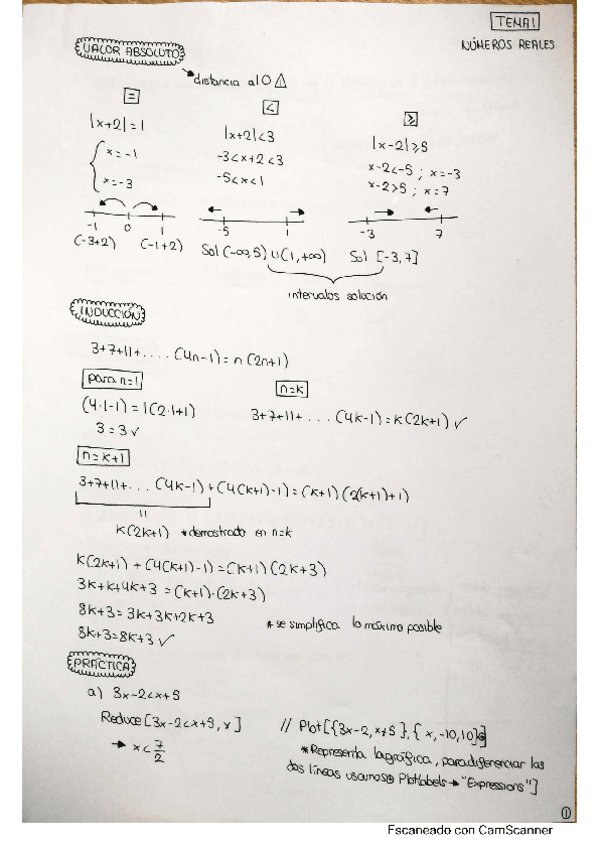 TEMA 1
NÚMEROS REALES
VALOR ABSOLUTO
distancia al 0 ⚠
=
|x+2|=1
x=-1
x=-3
-1 0 1
(-3+2) (-1+2)
<
|x+2|<3
-3<x+2<3
-5<x<1
-5 1
Sol (-∞,5) ∪ (1,+∞)
≥
|x-2|≥5
x-2<-5 ; x=-3
x-2>5 ; x=7
-3 7
Sol [-3,7]
intervalos solución
INDUCCIÓN
3+7+11+.... (4n-1) = n(2n+1)
para n=1
(4·1-1) = 1(2·1+1)
3=3 ✓
n=k
3+7+11+... (4k-1) = k(2k+1) ✓
n=k+1
3+7+11+... (4k-1) + (4(k+1)-1) = (k+1)(2(k+1)+1)
k(2k+1) *demostrado en n=k
k(2k+1) + (4(k+1)-1) = (k+1)(2k+3)
3k+k+4k+3 = (k+1)·(2k+3)
8k+3 = 3k+3k+2k+3
8k+3=8k+3 ✓ *se simplifica lo máximo posible
PRÁCTICA
a) 3x-2<x+5
Reduce[3x-2<x+5, x] // Plot[{3x-2, x+5}, {x,-10,10}]
→ x < 7/2
*Representa la gráfica, para diferenciar las
dos líneas usamos PlotLabels → "Expressions"]
1
Escaneado con CamScanner